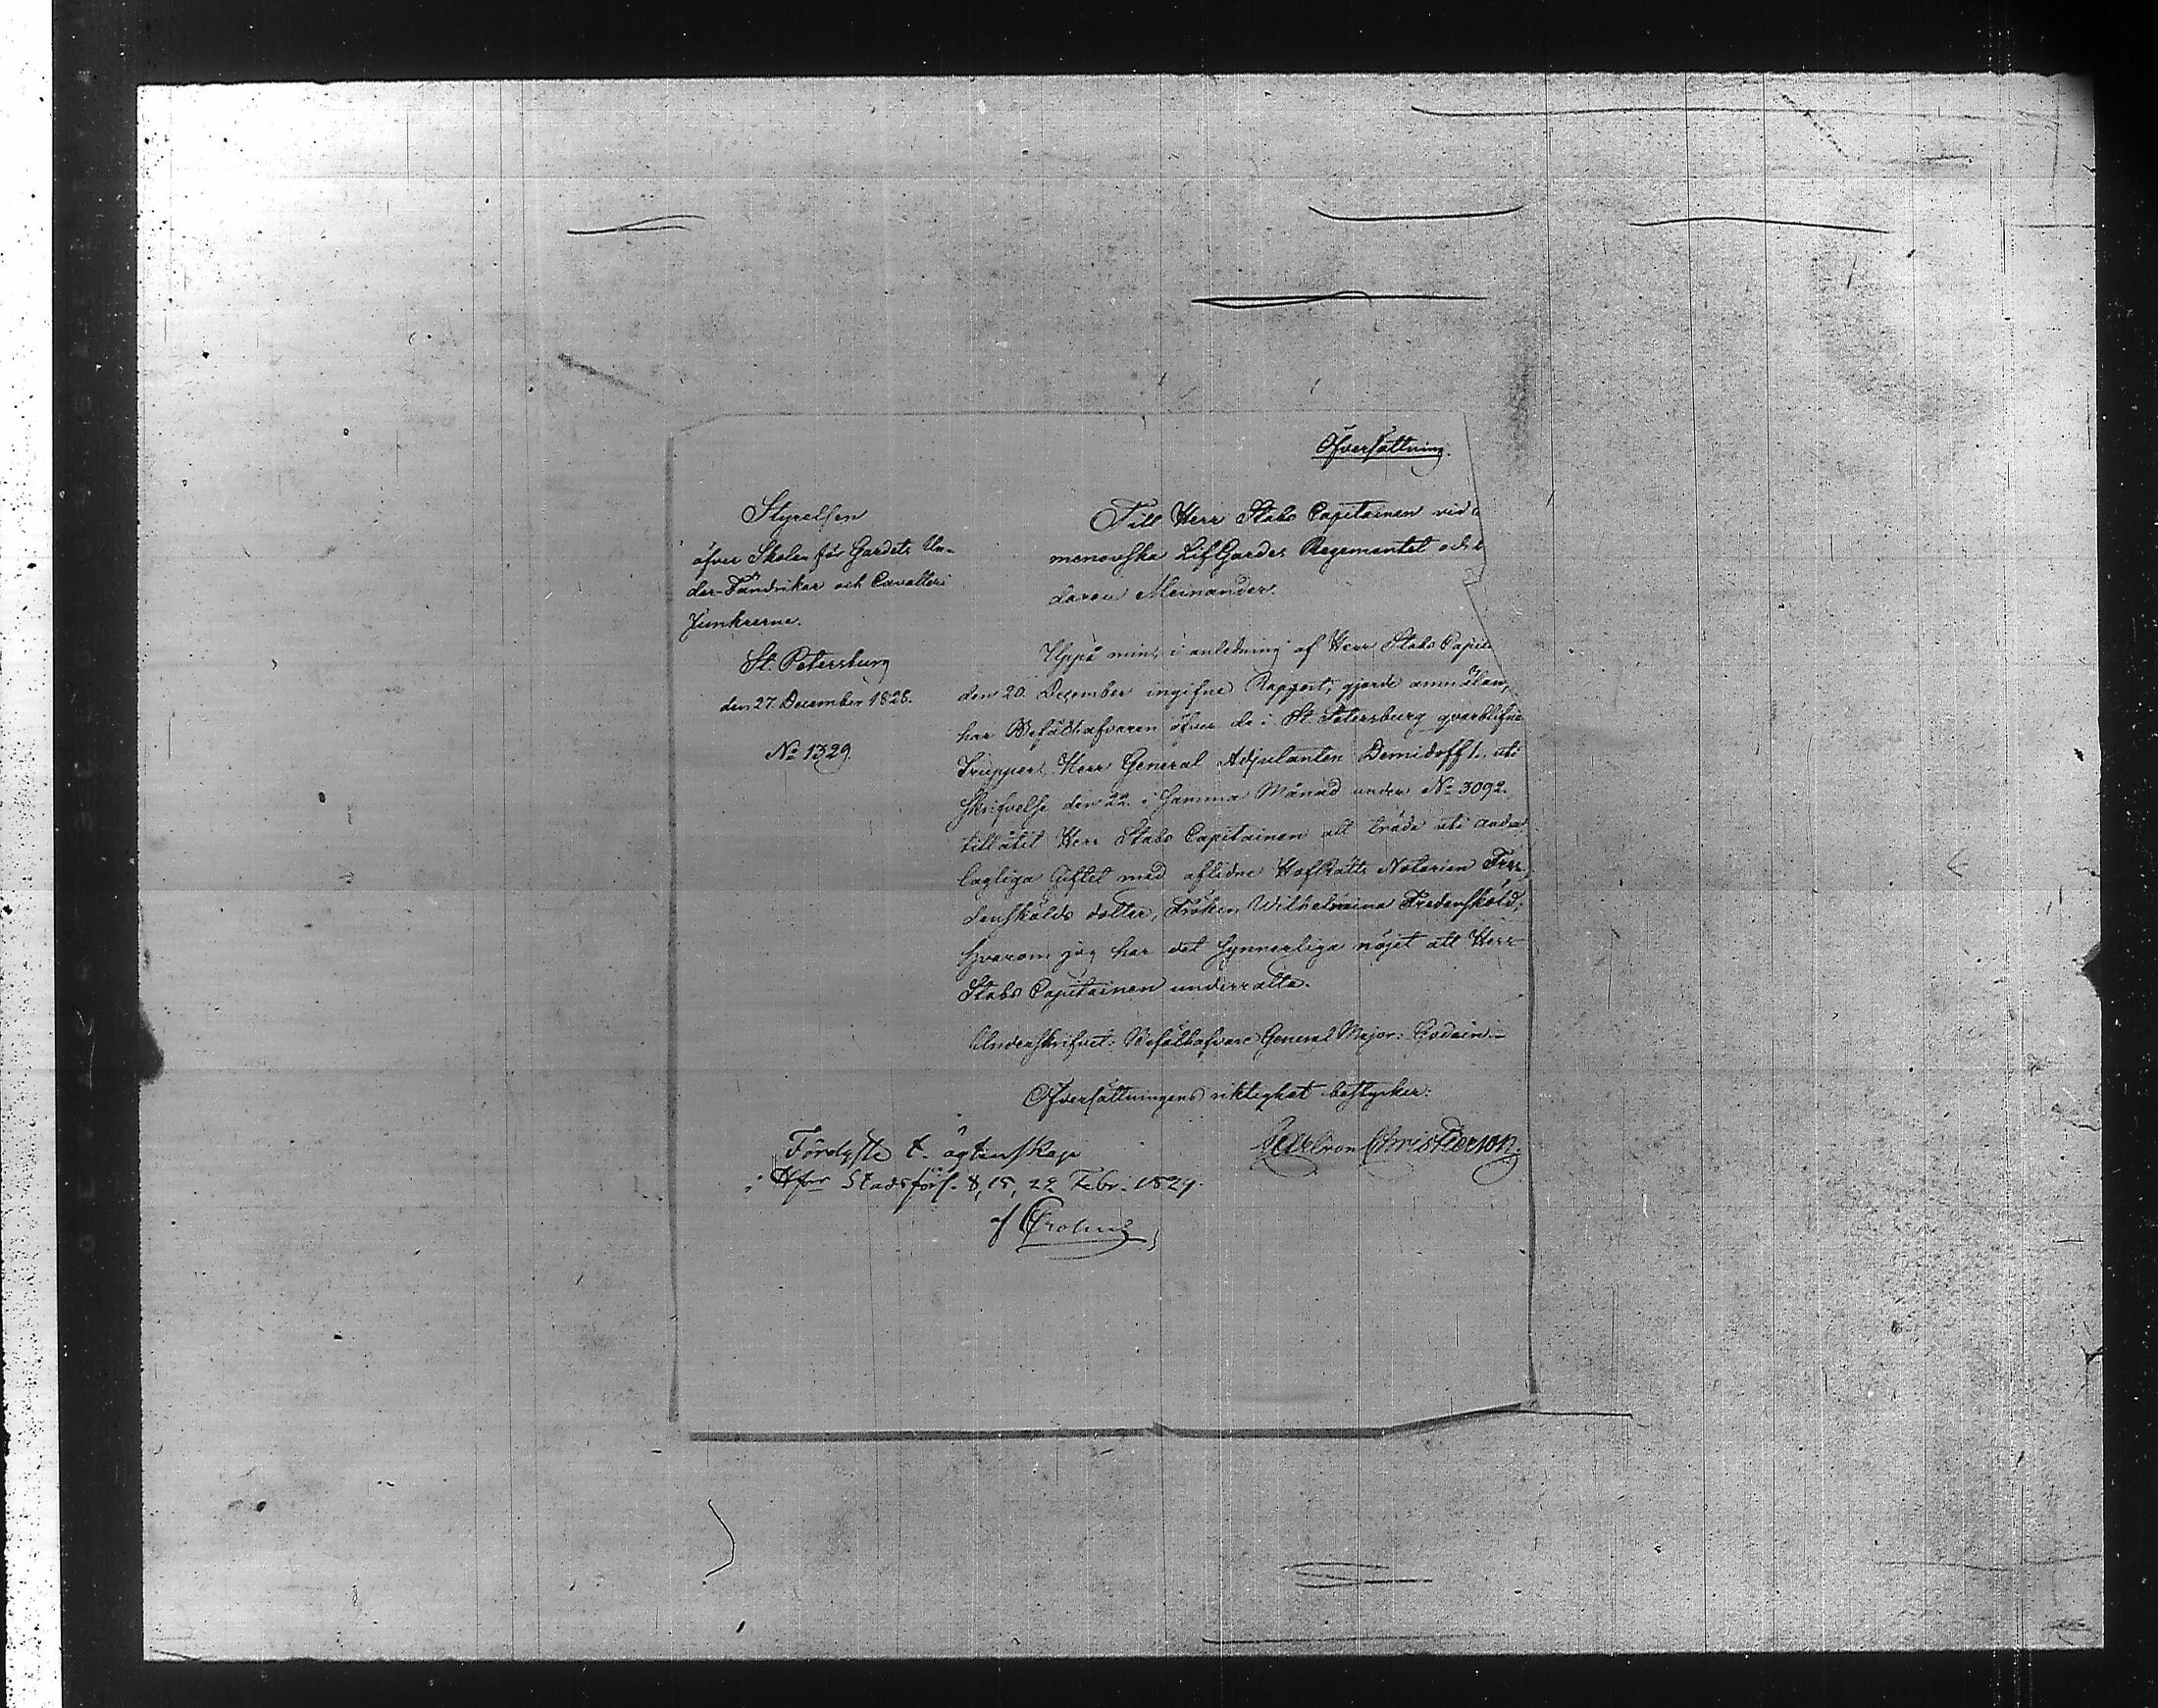 Öfversättning.
Styrelsen
öfver Skolen för Gardets Un-
der-Fändrikar och Cavalleri
Junkrarne.
St. Petersburg
den 27. December 1828.
No 1329.
Till Herr Stabs Capitainen vid
menovska Lif Gardes Regementet och
daren Meinander.
Uppå min, i anledning af Herr Stabs Capit
den 20. December ingifne Rapport, gjorde anmälan,
har Befälhafvaren öfver de i St. Petersburg qvarblifne
Trupper, Herr General Adjutanten Demidoff 1. uti
skrifvelse den 22. i samma Månad under No 3092.
tillåtit Herr Stabs Capitainen att träda uti andra
lagliga Giftet med aflidne HofRätts Notarien Fre-
denskölds dotter, Fröken Wilhelmina Fredensköld;
hvarom jag har det synnerliga nöjet att Herr
Stabs Capitainen underrätta.
Underskrifvet: Befälhafvare General Major: Godein.
Öfversättningens riktighet bestyrker:
Carl von Christierson.
Förelyste t. ägtenskap
i Hfors Stadsförs. 8, 15, 22 Febr. 1829.
af